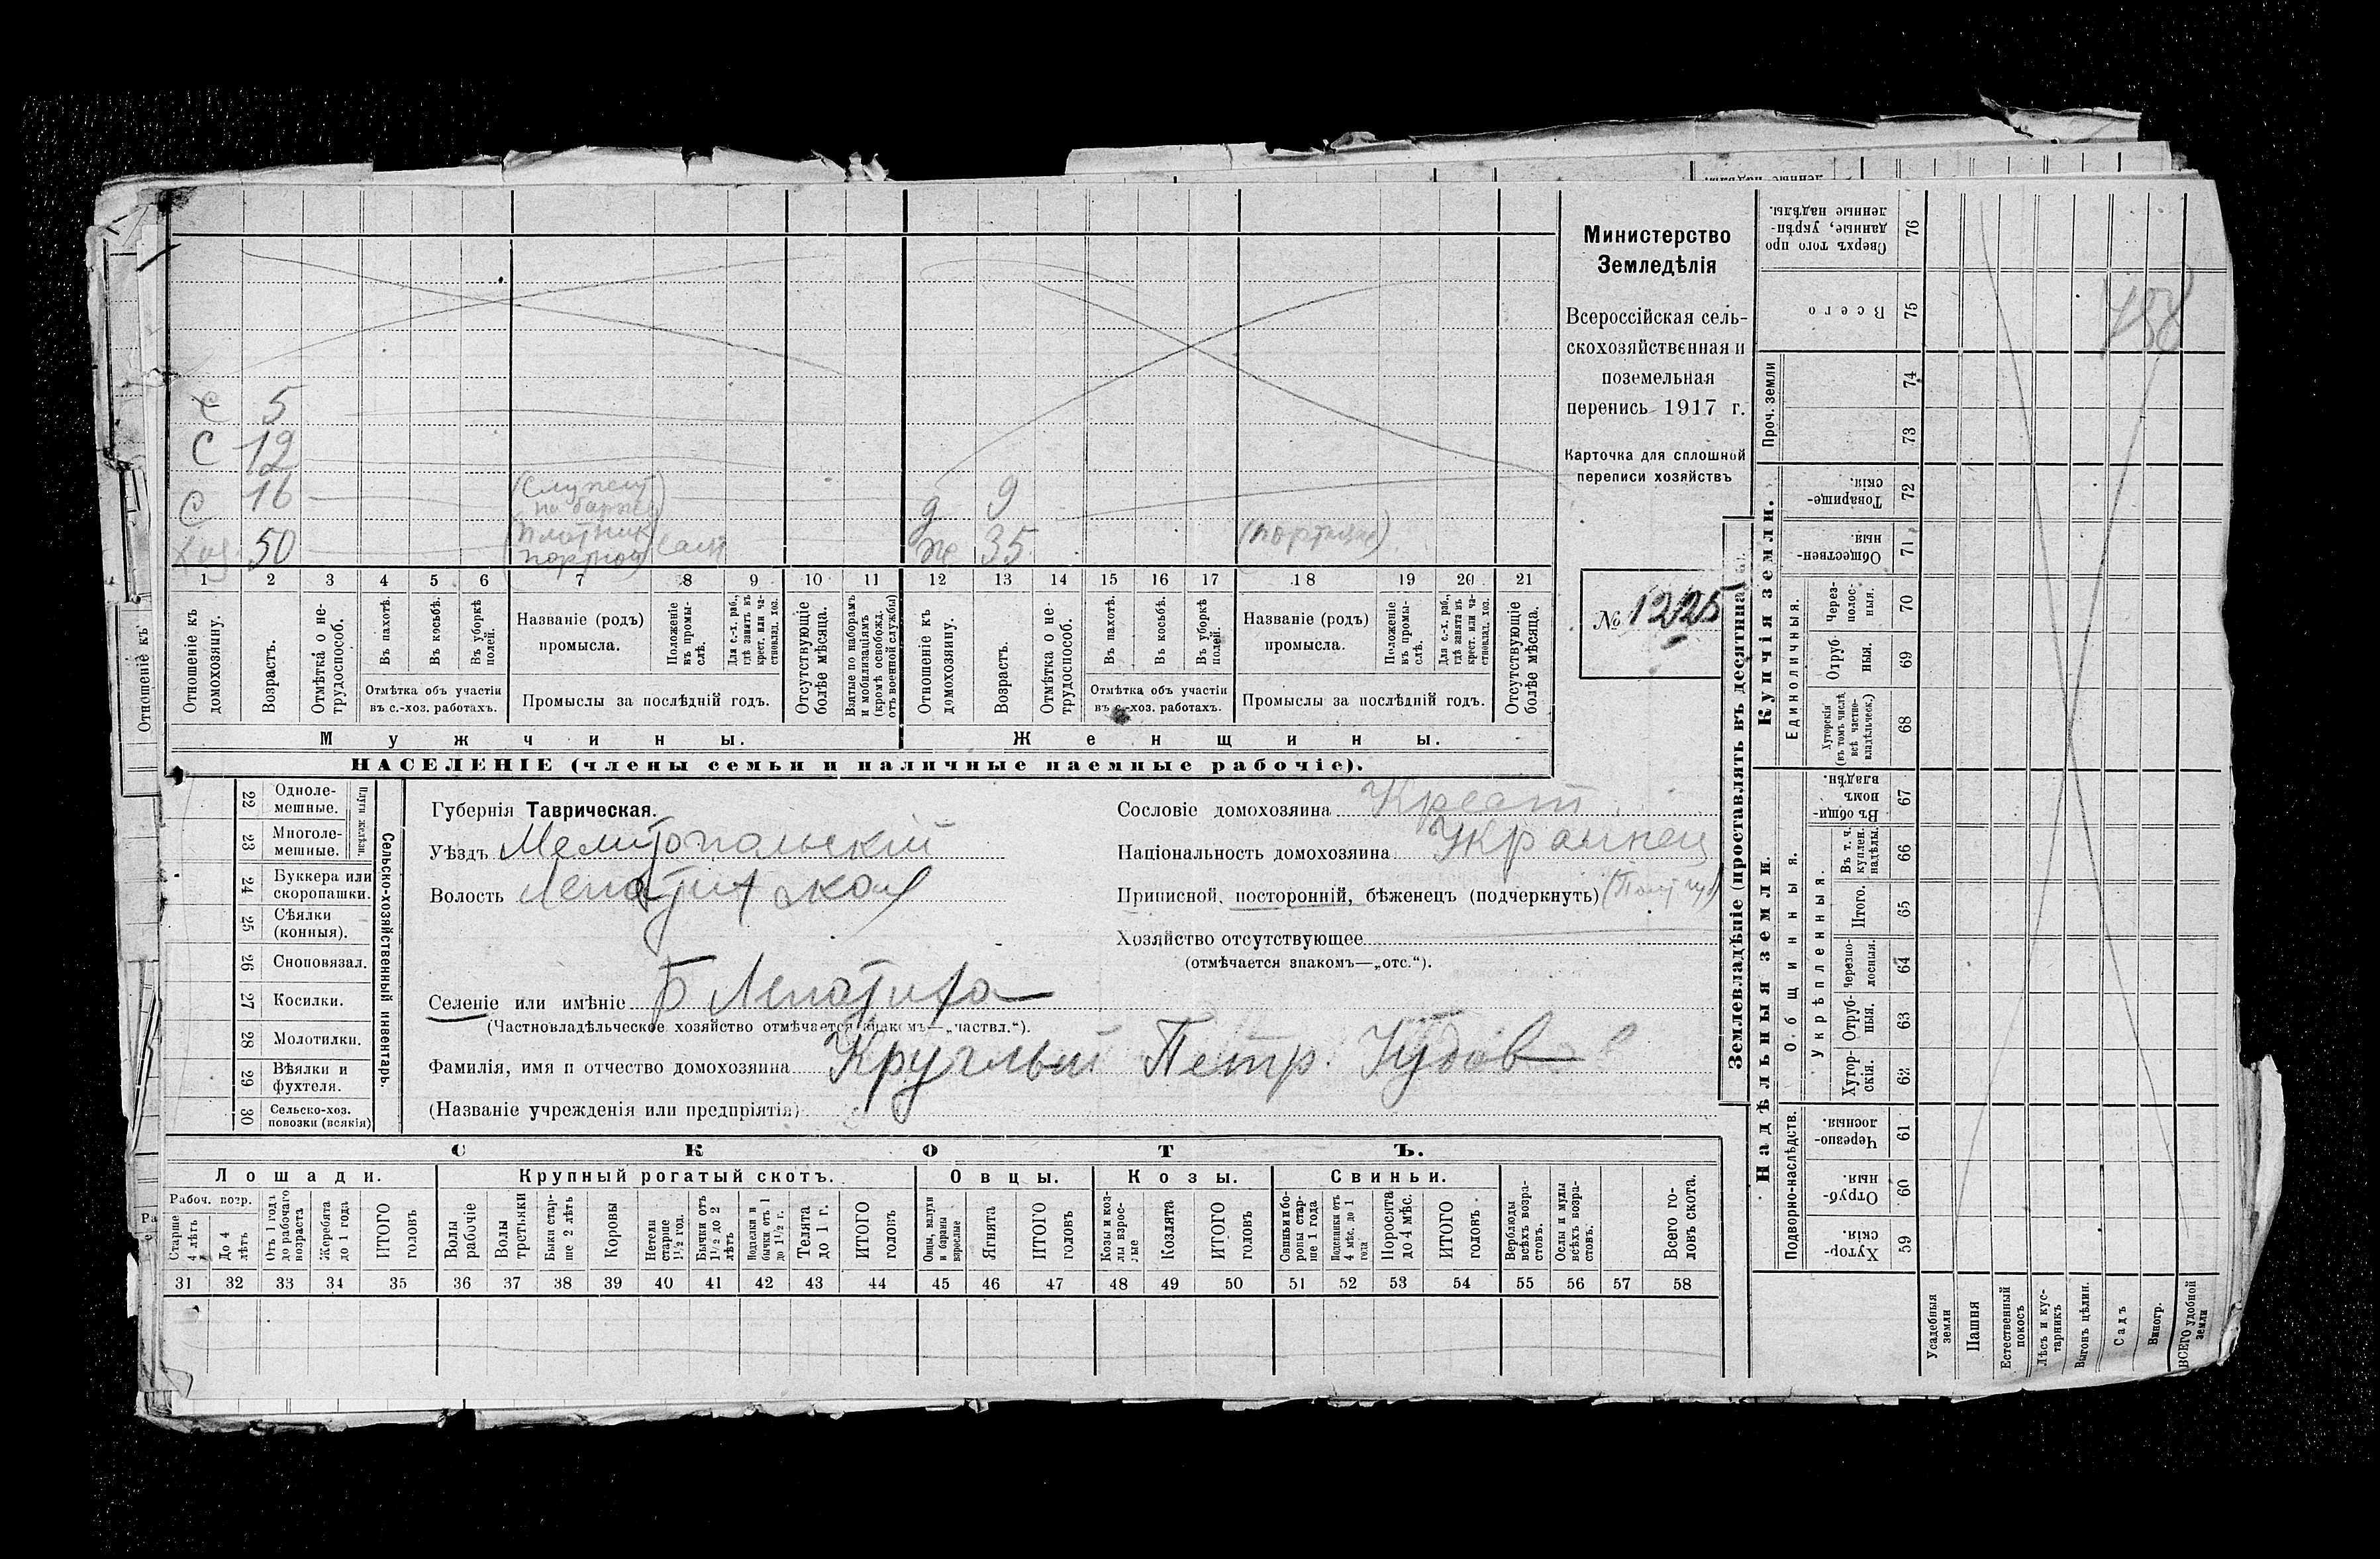 С 5
С 12
С 16 (служит
на барже)
Хоз 50 (плотник
портной) сам
д 9
ж 35
1 2 3 4 5 6 7 8 9 10 11 12 13 14 15 16 17 18 19 20 21
Отношеніе къ домохозяину.
Возрастъ.
Отмѣтка о не-трудоспособ.
Въ пахотѣ.
Въ косьбѣ.
Въ уборкѣ полей.
Отмѣтка объ участіи
въ с.-хоз. работахъ.
Названіе (родъ)
промысла.
Положеніе въ промы-слѣ.
Для с.-х. раб., гдѣ занятъ въ крест. или ча-стновлад. хоз.
Промыслы за послѣдній годъ.
Отсутствующіе болѣе мѣсяца.
Взятые по наборамъ и мобилизаціямъ (кромѣ освобожд. отъ военной службы)
Отношеніе къ домохозяину.
Возрастъ.
Отмѣтка о не-трудоспособ.
Въ пахотѣ.
Въ косьбѣ.
Въ уборкѣ полей.
Отмѣтка объ участіи
въ с.-хоз. работахъ.
Названіе (родъ)
промысла.
Положеніе въ промы-слѣ.
Для с.-х. раб., гдѣ занята въ крест. или ча-стновлад. хоз.
Промыслы за послѣдній годъ.
Отсутствующіе болѣе мѣсяца.
Мужчины.
Женщины.
НАСЕЛЕНІЕ (члены семьи и наличные наемные рабочіе).
Министерство
Земледѣлія
Всероссійская сель-
скохозяйственная и
поземельная
перепись 1917 г.
Карточка для сплошной
переписи хозяйствъ
№ 1225
Сельско-хозяйственный инвентарь.
Плуги желѣзн.
22 Одноле-
мешные.
23 Многоле-
мешные.
24 Буккера или
скоропашки.
25 Сѣялки
(конныя).
26 Сноповязал.
27 Косилки.
28 Молотилки.
29 Вѣялки и
фухтеля.
30 Сельско-хоз.
повозки (всякія)
Губернія Таврическая.
Уѣздъ Мелитопольскій
Волость
Селеніе или имѣніе Б Лепатиха
(Частновладѣльческое хозяйство отмѣчается знакомъ—„частвл.“).
Фамилія, имя и отчество домохозяина Круглый Петр.
(Названіе учрежденія или предпріятія)
Сословіе домохозяина Крест.
Національность домохозяина Украинец
Приписной, посторонній, бѣженецъ (подчеркнуть)
Хозяйство отсутствующее
(отмѣчается знакомъ—„отс.“).
СКОТЪ.
Лошади.
Крупный рогатый скотъ.
Овцы.
Козы.
Свиньи.
Рабоч. возр.
Старше 4 лѣтъ
До 4 лѣтъ
Отъ 1 года до рабочаго возраста
Жеребята до 1 года
ИТОГО головъ
Волы рабочіе
Волы третьяки
Быки стар-ше 2 лѣтъ
Коровы
Нетели старше 1½ год.
Бычки отъ 1½ до 2 лѣтъ
Подтелки и бычки отъ 1 до 1½ г.
Телята до 1 г.
ИТОГО головъ
Овцы, валухи и бараны взрослые
Ягнята
ИТОГО головъ
Козы и коз-лы взрос-лые
Козлята
ИТОГО головъ
Свиньи и бо-ровы стар-ше 1 года
Подсвинки отъ 4 мѣс. до 1 года
Поросята до 4 мѣс.
ИТОГО головъ
Верблюды всѣхъ возра-стовъ.
Ослы и мулы всѣхъ возра-стовъ.
Всего го-ловъ скота.
31 32 33 34 35 36 37 38 39 40 41 42 43 44 45 46 47 48 49 50 51 52 53 54 55 56 57 58
Землевладѣніе (проставлять въ десятинахъ).
Надѣльныя земли.
Купчія земли.
Подворно-наслѣдств.
Общинныя.
Укрѣпленныя.
Единоличныя.
Проч. земли
Хутор-скія. 59
Отруб-ныя. 60
Черезпо-лосныя. 61
Хутор-скія. 62
Отруб-ныя. 63
Черезпо-лосныя. 64
Итого. 65
Въ т. ч. куплен. надѣлы. 66
Въ общин-номъ владѣн. 67
Хуторскія (въ томъ числѣ всѣ частно-владѣльческ.) 68
Отруб-ныя. 69
Через-полос-ныя. 70
Обществен-ныя. 71
Товарище-скія. 72
73
74
Всего 75
Сверхъ того про-данные, укрѣп-ленные надѣлы. 76
458
Усадебныя земли
Пашня
Естественный покосъ
Лѣсъ и кус-тарникъ
Выгонъ цѣлин.
Садъ
Виногр.
ВСЕГО удобной земли
Отношеніе къ